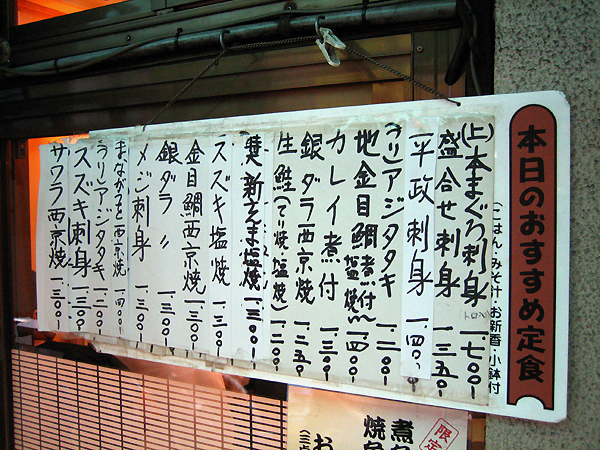 本日のおすすめ定食
(ごはん・みそ汁・お新香・小鉢付
(上)本まぐろ刺身 一、七〇〇
盛合せ刺身 一、三五〇
平政刺身 一、四〇〇
アジタタキ 一、二〇〇
地金目鯛煮付 塩焼 一、四〇〇
カレイ煮付 一、三〇〇
銀ダラ西京焼 一、二五〇
生鮭(てり焼・塩焼) 一、二〇〇
新さんま塩焼 一、三〇〇
スズキ塩焼 一、三〇〇
金目鯛西京焼 一、三〇〇
銀ダラ 〃 一、二〇〇
メジ刺身 一、三〇〇
まながつを西京焼 一、四〇〇
アジタタキ 一、二〇〇
スズキ刺身 一、三〇〇
サワラ西京焼 一、三〇〇
限定
煮
焼魚
お